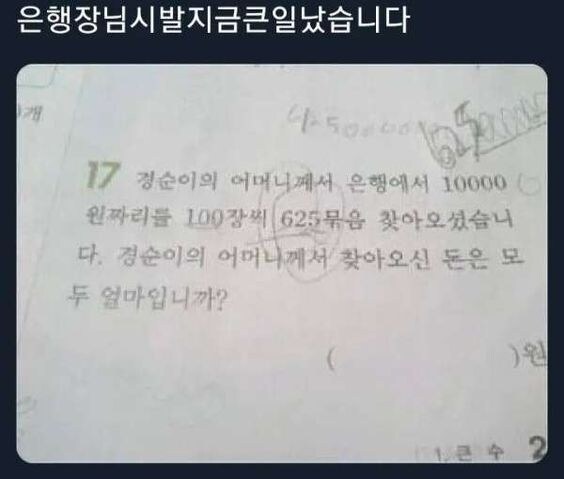 은행장님시발지금큰일났습니다
개
17 경순이의 어머니께서 은행에서 10000
원짜리를 100장씩 625묶음 찾아오셨습니
다. 경순이의 어머니께서 찾아오신 돈은 모
두 얼마입니까?
( )원
1. 큰 수 2